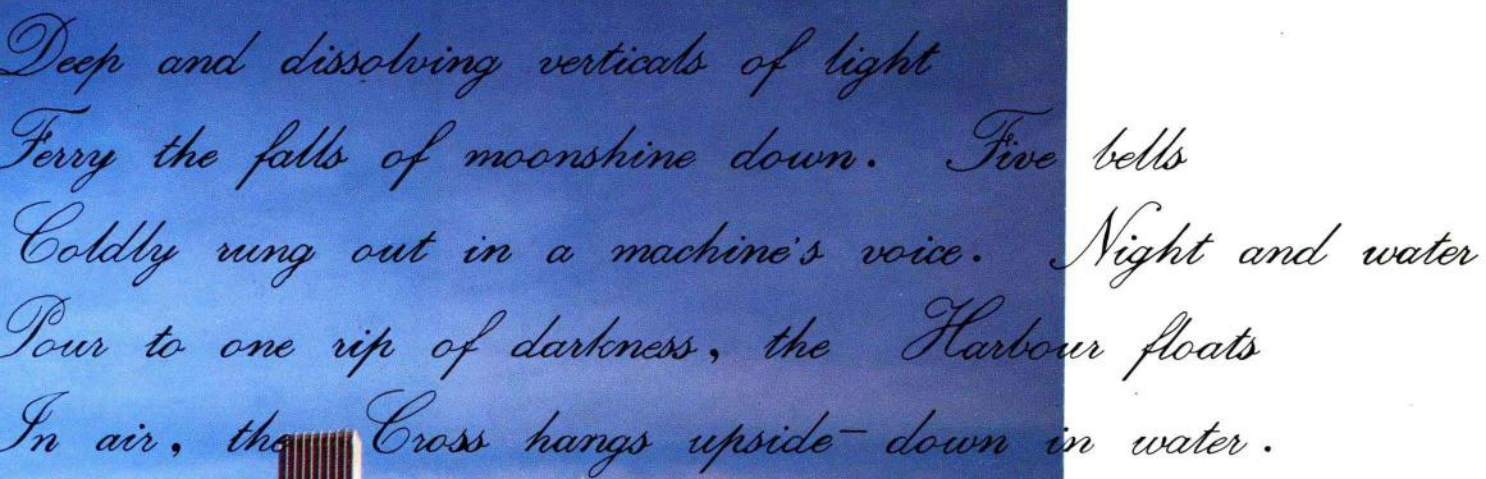 Deep and dissolving verticals of light
Ferry the falls of moonshine down. Five bells
Coldly rung out in a machine's voice. Night and water
Pour to one rip of darkness, the Harbour floats
In air, the Cross hangs upside-down in water.